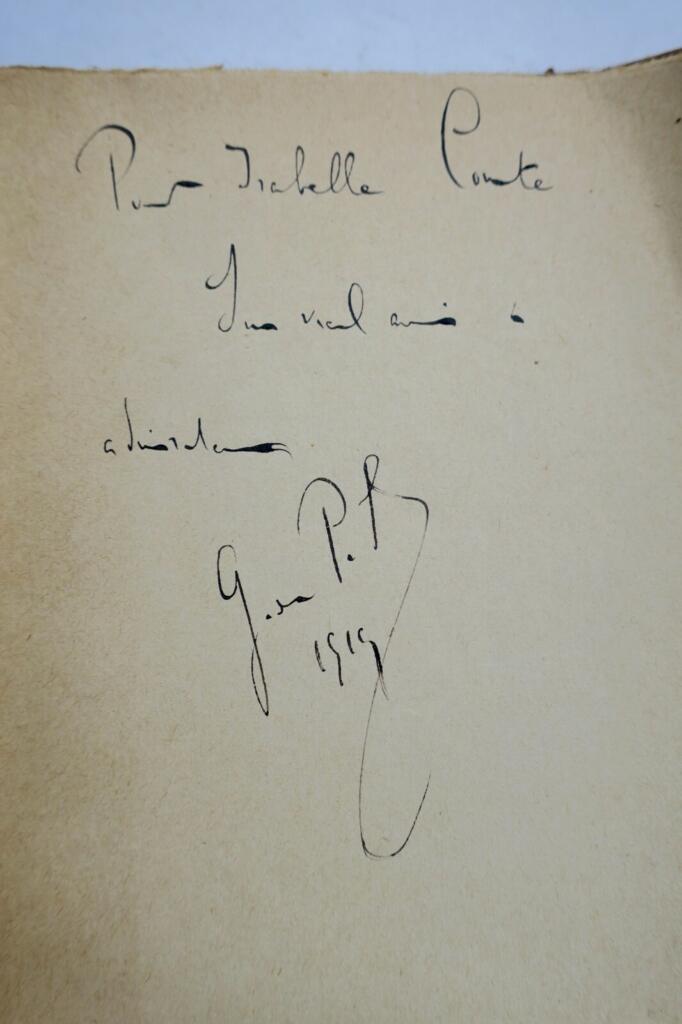 Pour Isabelle Comte
Son vieil ami &
admirateur
1919